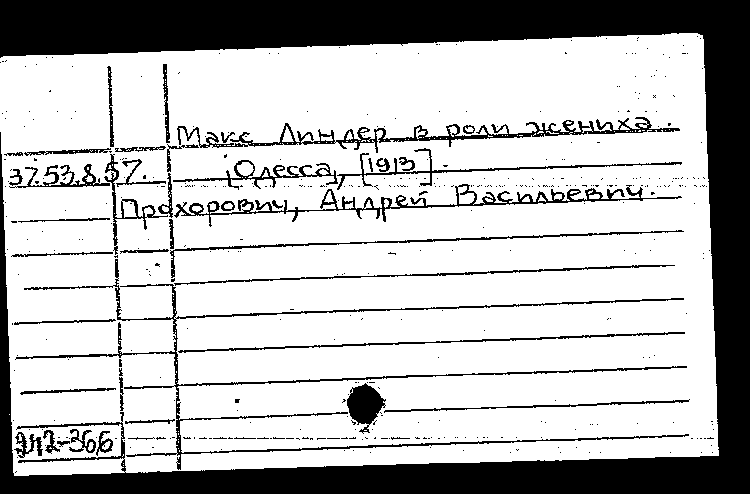 Макс Линдер в роли жениха.
37.53.8.57. [Одесса, [1913].
Прохорович, Андрей Васильевич.
242-366